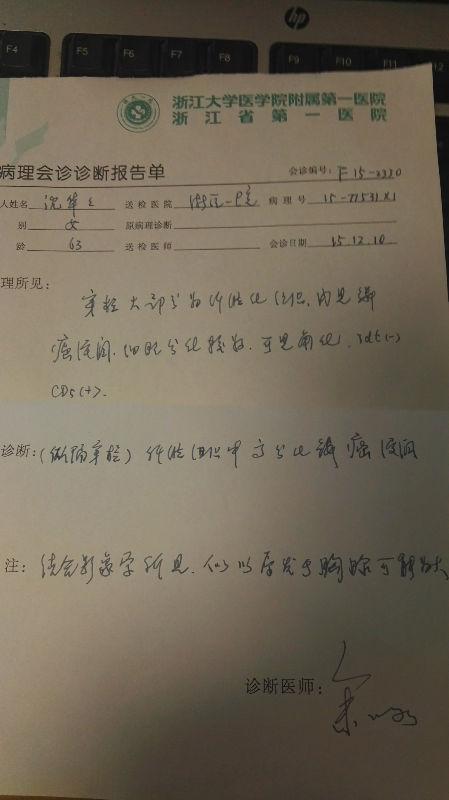 F4 F5 F6 F7 F8 F9 F10 F11
hp
浙江大学医学院附属第一医院
浙江省第一医院
病理会诊诊断报告单
会诊编号: F15-2320
人姓名 送检医院 浙医一院 病理号 15-77531X1
别 女 原病理诊断
龄 63 送检医师 会诊日期 15.12.10
理所见:
穿检大部分为纤维化组织,内见鳞
癌浸润.细胞分化较好.可见角化.Tdt(-)
CD5(+).
诊断:(纵隔穿检)纤维组织中高分化鳞癌浸润
注: 结合影像学所见,仍以原发于胸腺可能为大
诊断医师: